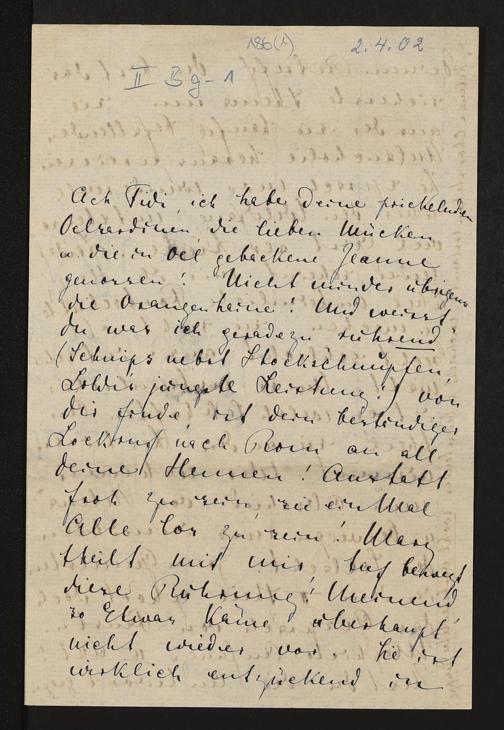 186(1)
2.4.02
II Bg-1
Ach Fidi, ich habe deine prickelnden
Oelsardinen, die lieben Mücken
u die in Oel gebackene Jeanne
genossen! Nicht minder übrigens
die Orangenhaine! Und weisst
du was ich geradezu rührend
(Schnips nebst Stockschnupfen,
Loldi's jüngste Leistung!) von
dir finde, ist dein beständiger
Lockruf nach Rom an all
deine Hennen! Anstatt
froh zu sein, sie ein Mal
Alle los zu sein! Mary
theilt mit mir tief bewegt
diese Rührung! Meinend,
so Etwas käme überhaupt
nicht wieder vor. Sie ist
wirklich entzückend in